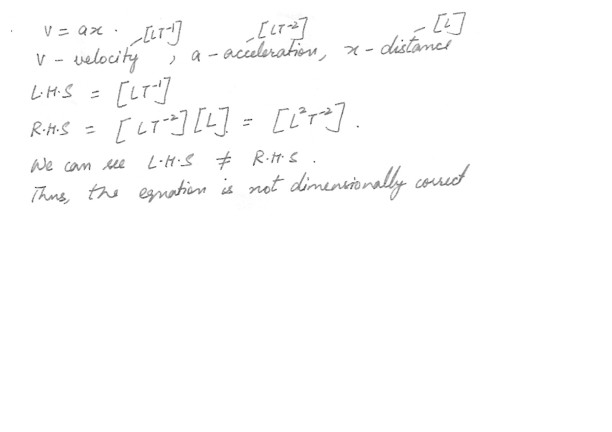 V = ax .
V - velocity - [LT⁻¹], a - acceleration [LT⁻²], x - distance - [L]
L.H.S = [LT⁻¹]
R.H.S = [LT⁻²][L] = [L²T⁻²].
We can see L.H.S ≠ R.H.S.
Thus, the equation is not dimensionally correct